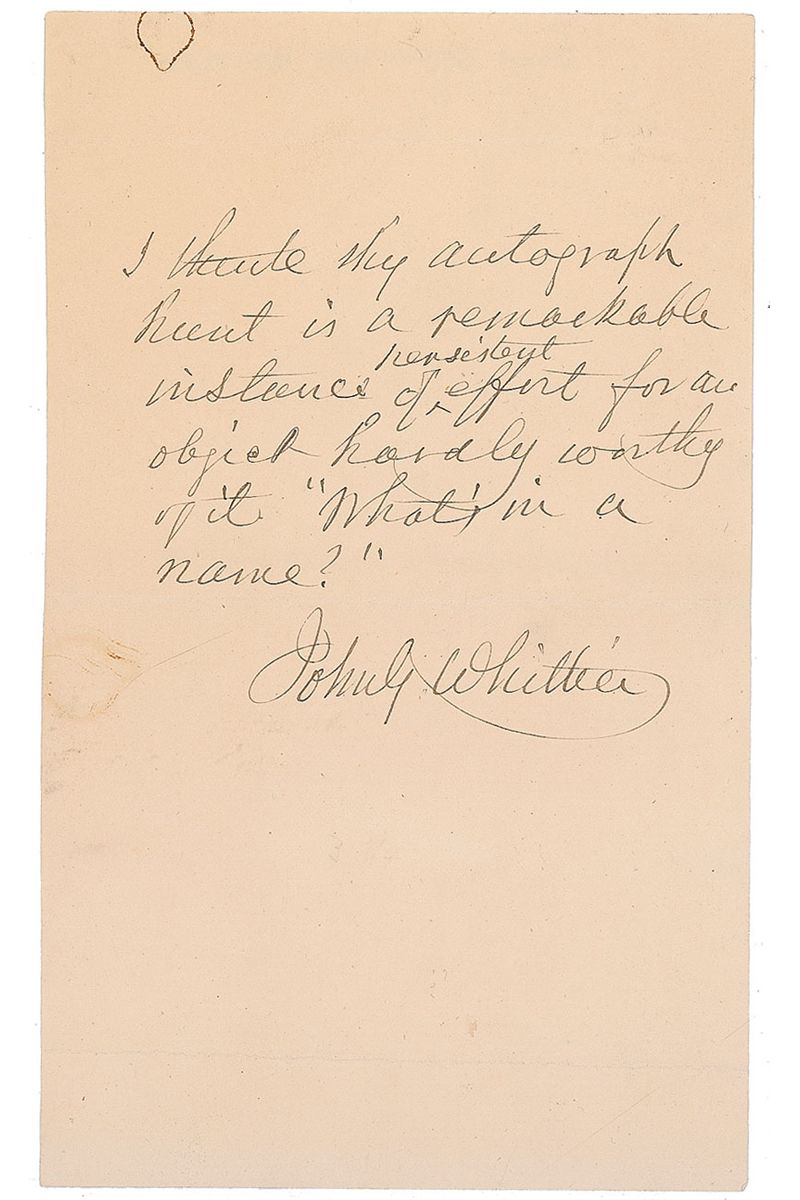 I think thy autograph
hunt is a remarkable
instance of persistent effort for an
object hardly worthy
of it "What's in a
name?"
John G Whittier